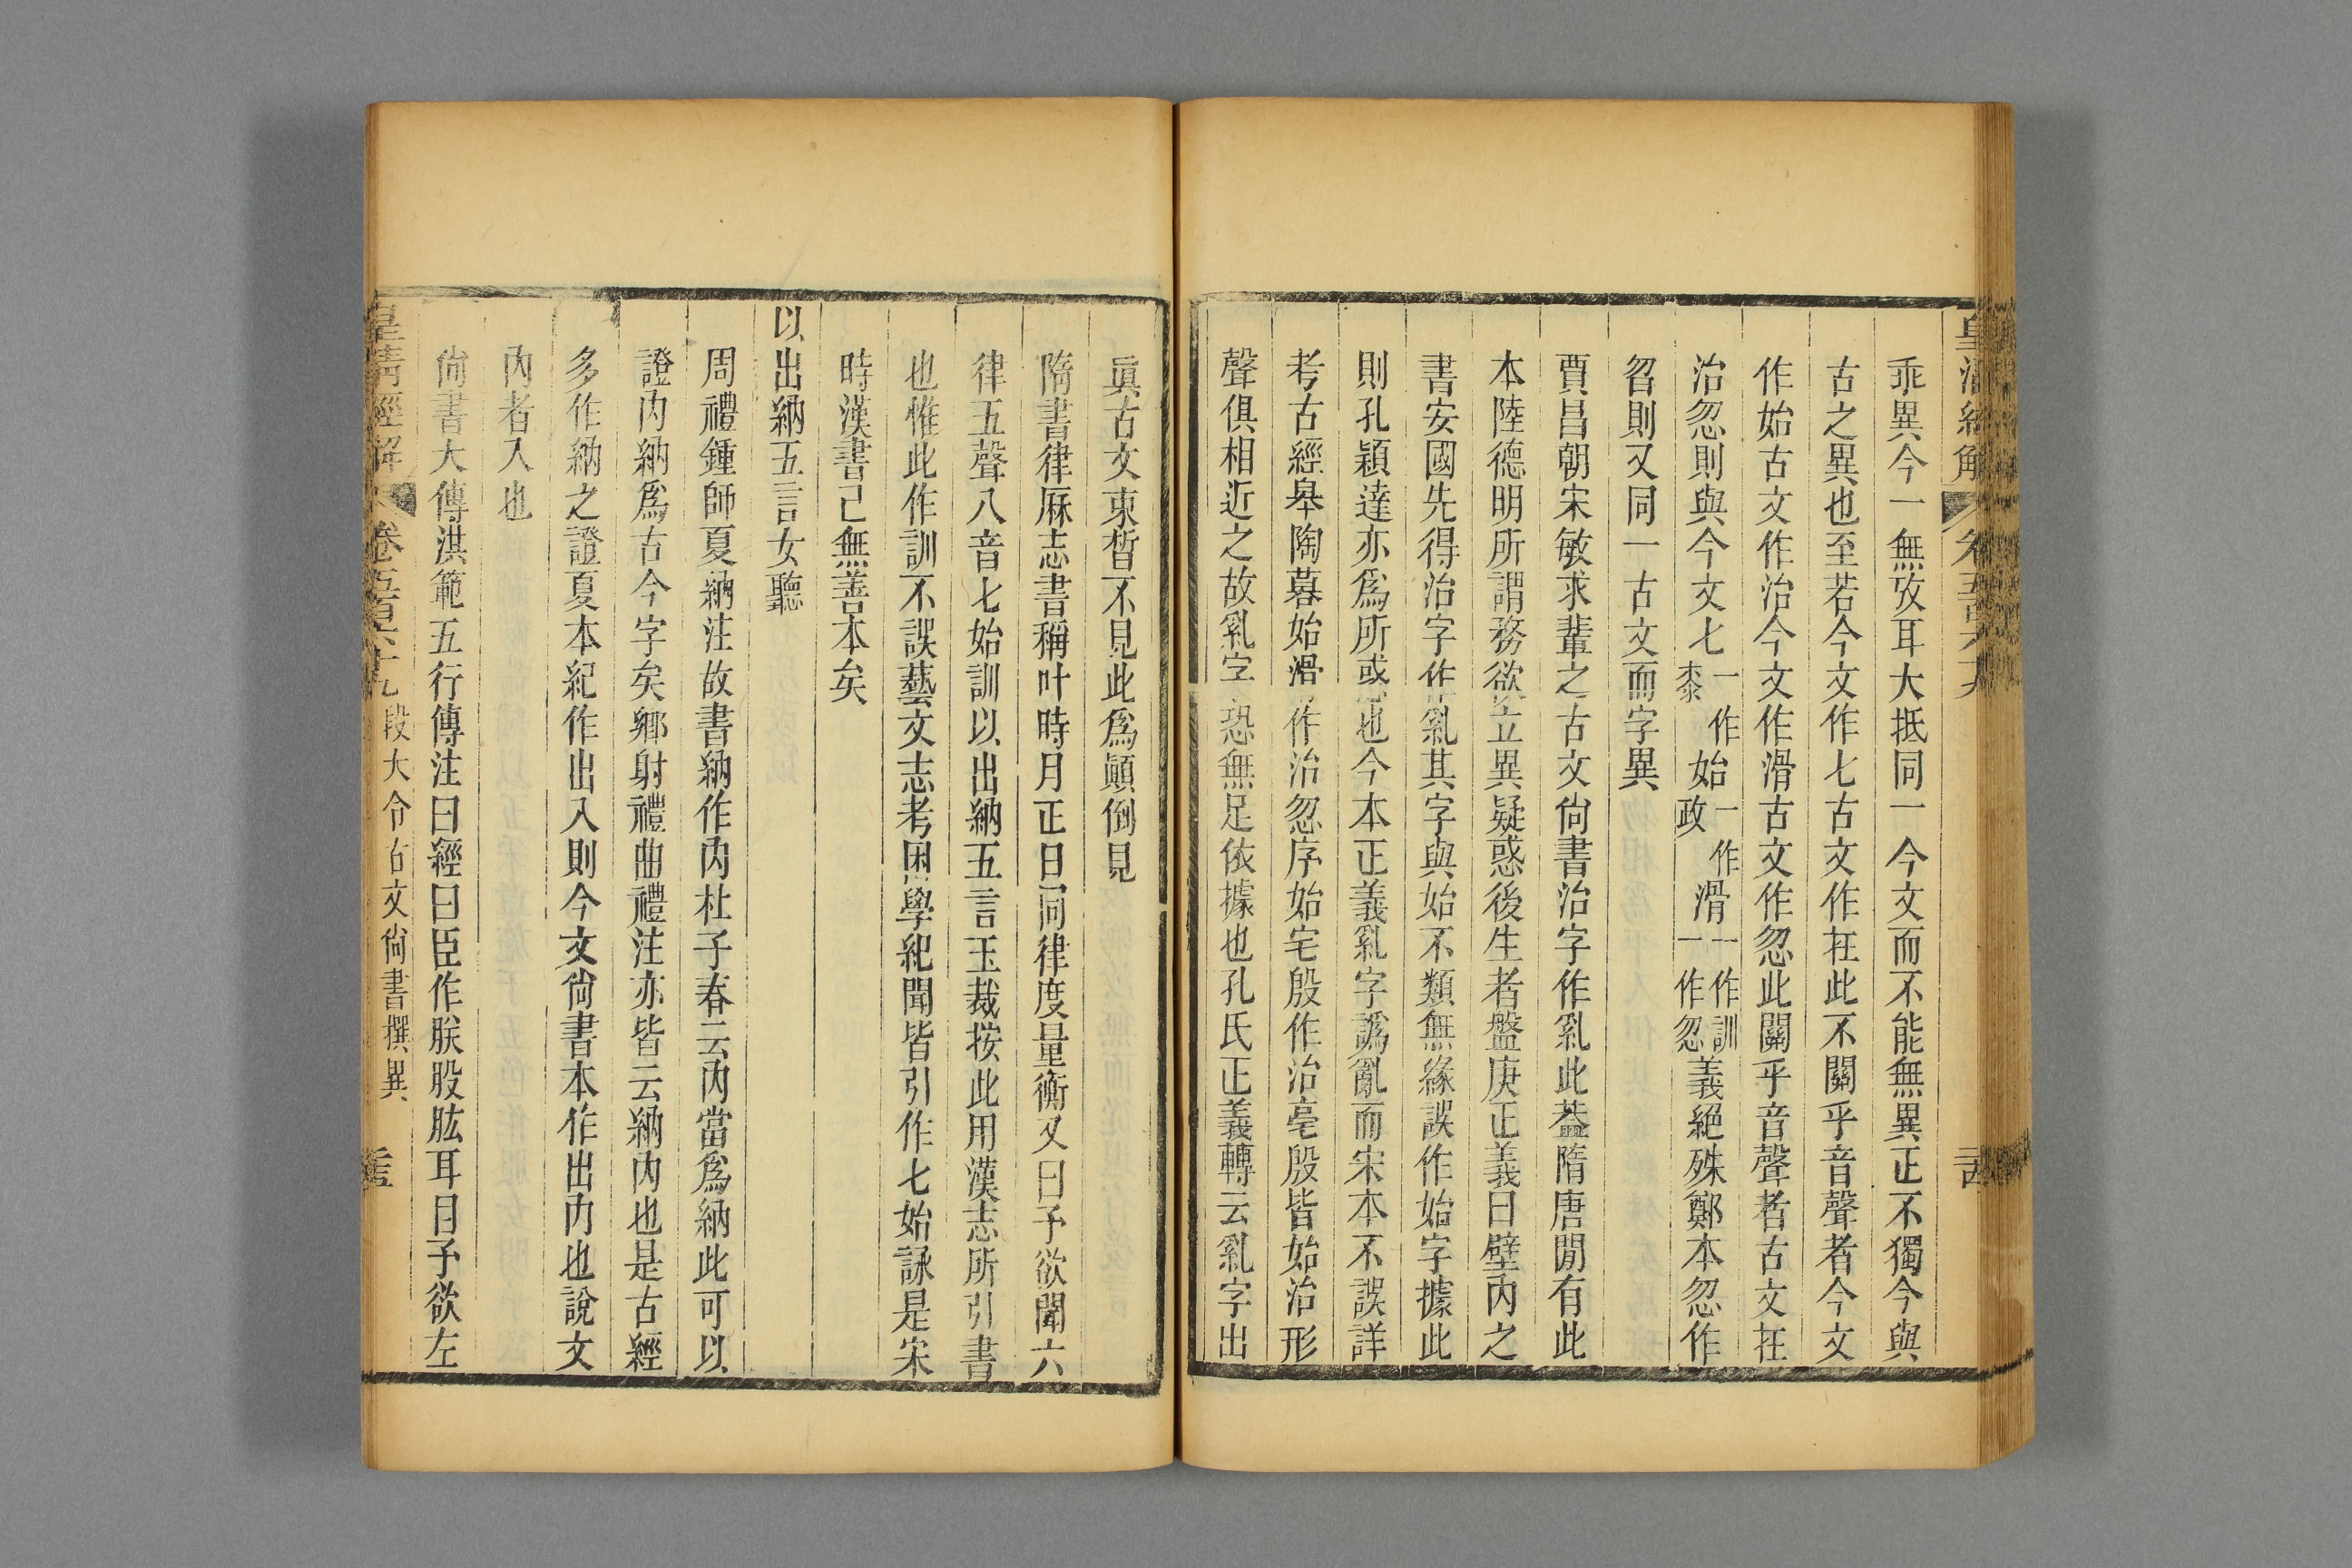 皇清經解
卷五百六十九
乖異今一無攷耳大抵同一今文而不能無異正不獨今與
古之異也至若今文作七古文作在此不關乎音聲者今文
作始古文作治今文作滑古文作忽此關乎音聲者古文在
治忽則與今文七一作桼始一作政滑一作訓一作忽義絕殊鄭本忽作
曶則又同一古文而字異
賈昌朝宋敏求輩之古文尙書治字作乿此葢隋唐閒有此
本陸德明所謂務欲立異疑惑後生者盤庚正義曰壁內之
書安國先得治字作乿其字與始不類無緣誤作始字據此
則孔穎達亦爲所惑也今本正義乿字譌亂而宋本不誤詳
考古經皋陶暮始滑作治忽序始宅殷作治亳殷皆始治形
聲俱相近之故乿字恐無足依據也孔氏正義轉云乿字出
眞古文東晳不見此爲顚倒見
隋書律厤志書稱叶時月正日同律度量衡又曰予欲聞六
律五聲八音七始訓以出納五言玉裁按此用漢志所引書
也惟此作訓不誤藝文志考困學紀聞皆引作七始詠是宋
時漢書已無善本矣
以出納五言女聽
周禮鍾師夏納注故書納作內杜子春云內當爲納此可以
證內納爲古今字矣鄉射禮曲禮注亦皆云納內也是古經
多作納之證夏本紀作出入則今文尙書本作出內也說文
內者入也
尙書大傳洪範五行傳注曰經曰臣作朕股肱耳目予欲左
皇清經解
卷五百六十九
段大令古文尙書撰異